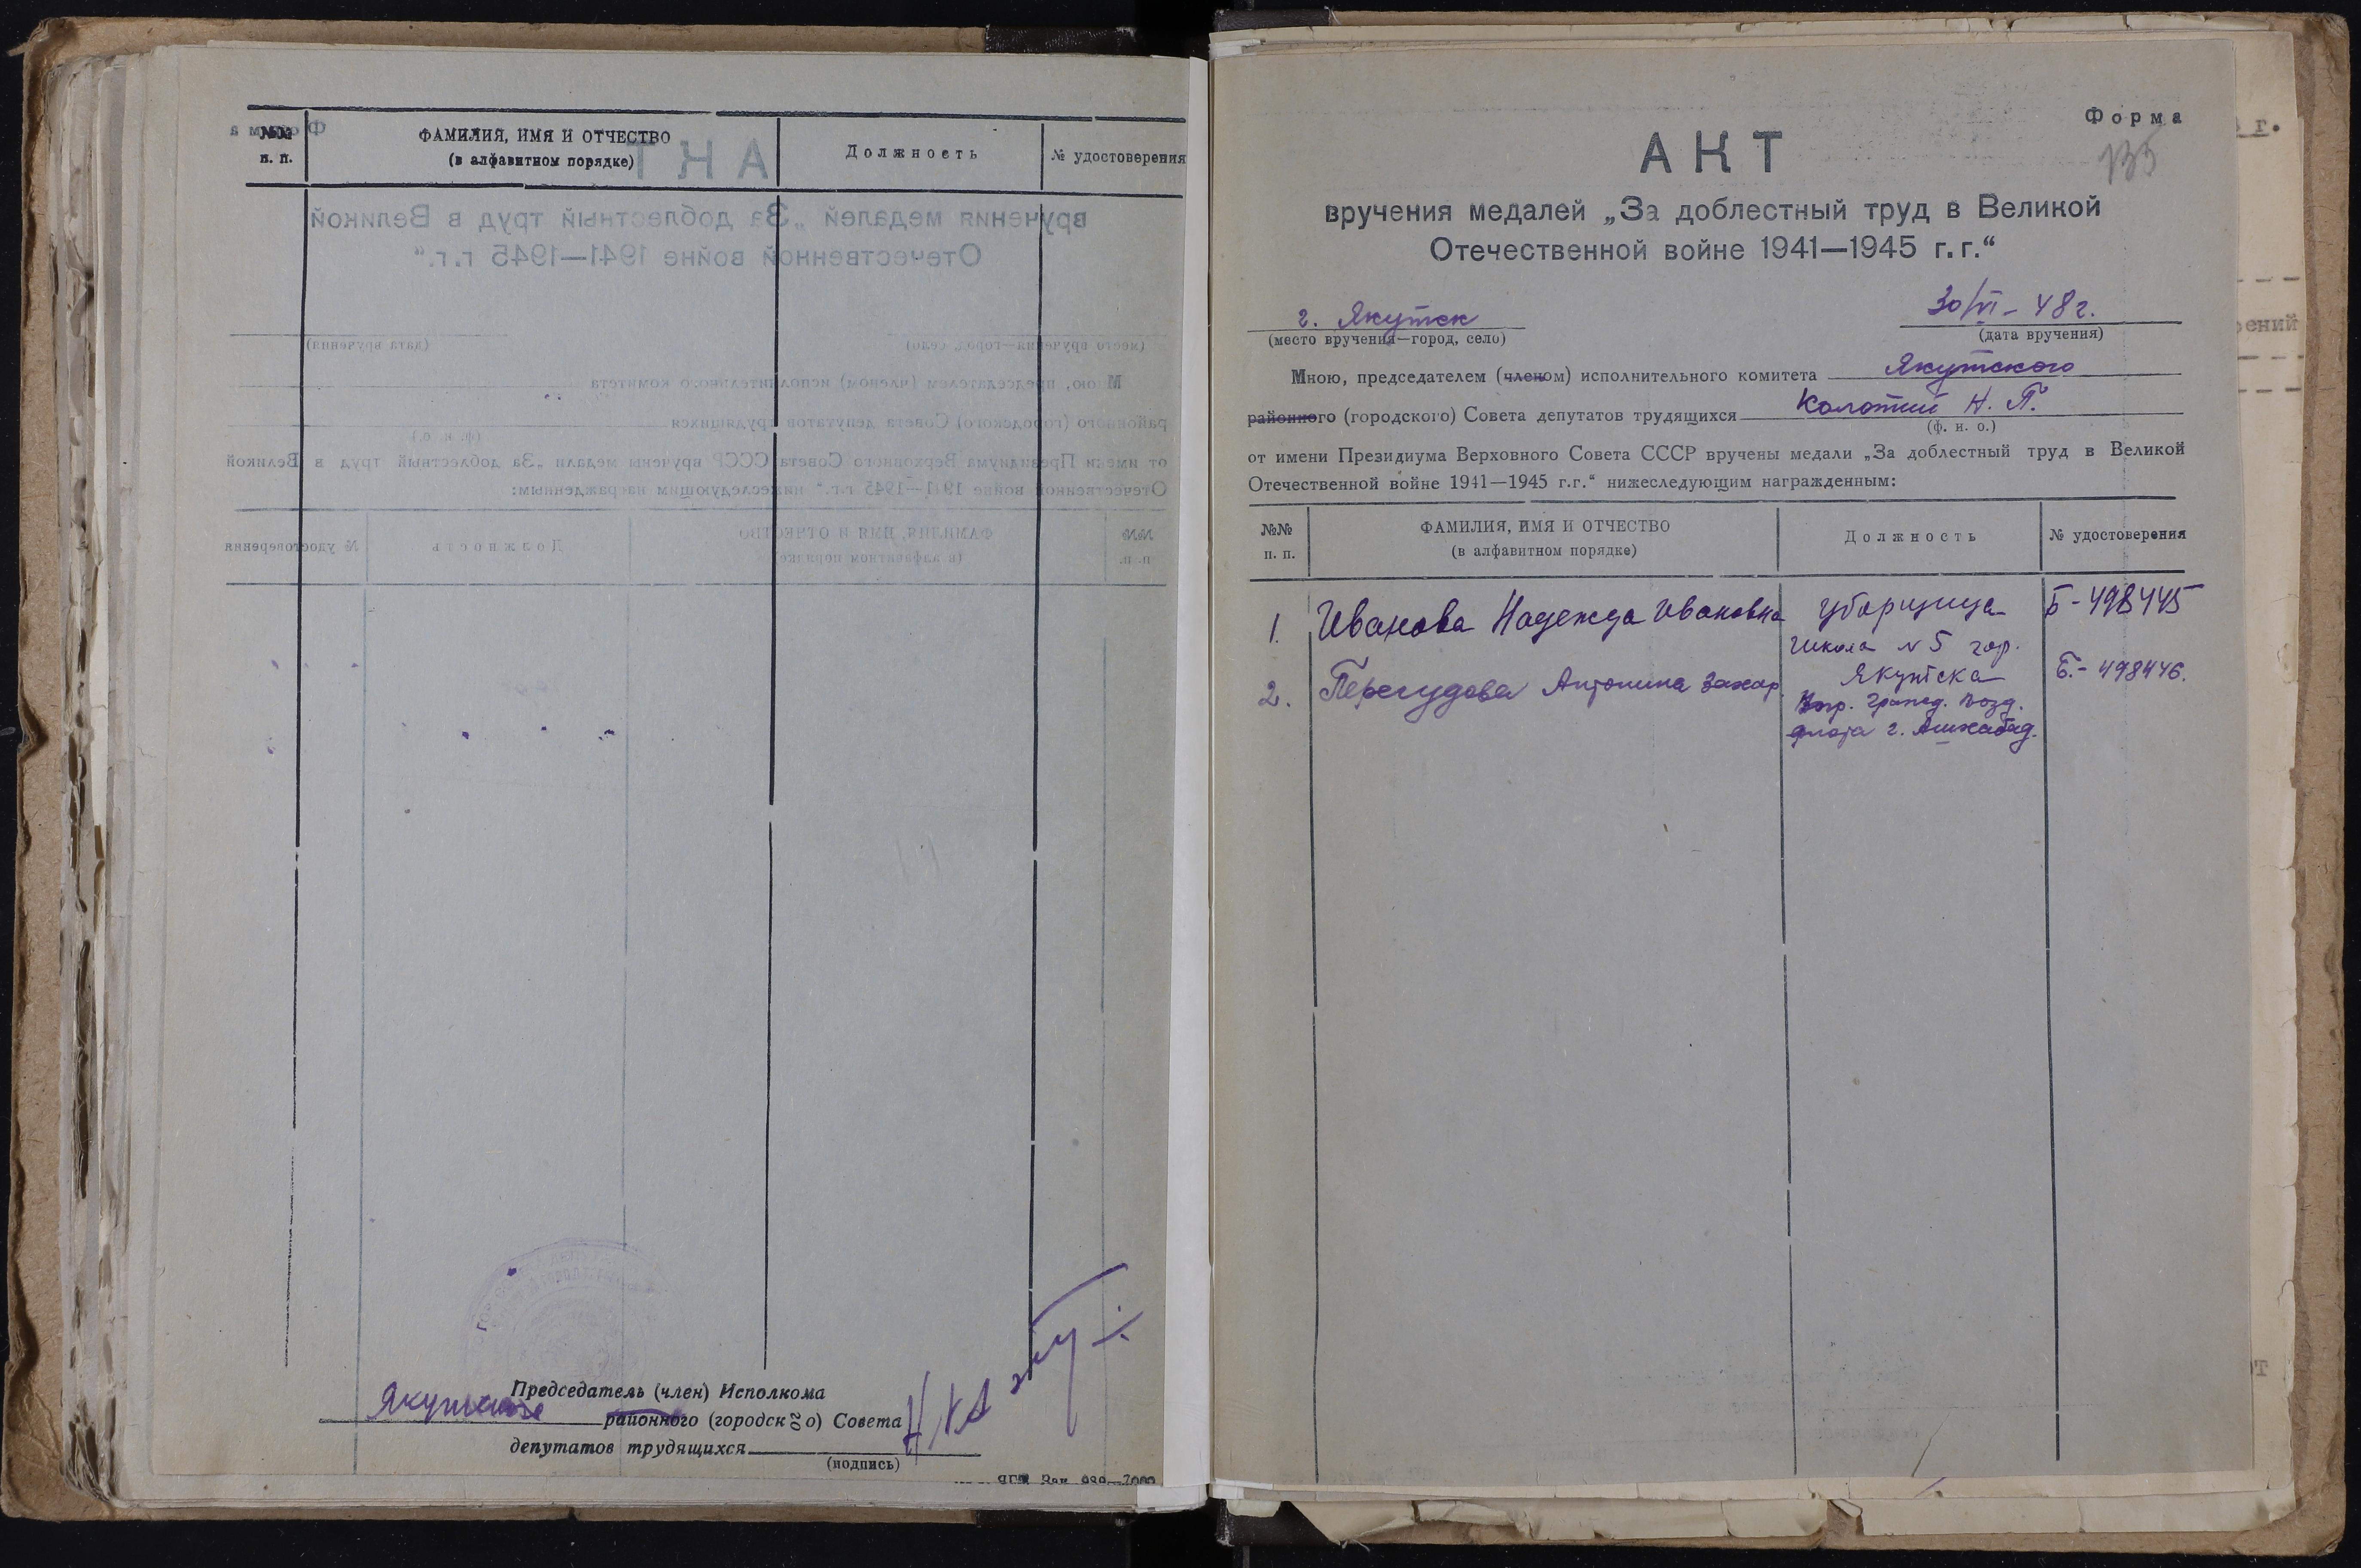 №№
п. п.
ФАМИЛИЯ, ИМЯ И ОТЧЕСТВО
(в алфавитном порядке)
Должность
№ удостоверения
Председатель (член) Исполкома
районного (городского) Совета
депутатов трудящихся
(подпись)
Форма
135
АКТ
вручения медалей „За доблестный труд в Великой
Отечественной войне 1941—1945 г.г.“
г. Якутск
30/VI - 48 г.
(место вручения—город, село)
(дата вручения)
Мною, председателем (членом) исполнительного комитета Якутского
районного (городского) Совета депутатов трудящихся Колотий Н. П.
(ф. и. о.)
от имени Президиума Верховного Совета СССР вручены медали „За доблестный труд в Великой
Отечественной войне 1941—1945 г.г.“ нижеследующим награжденным:
№№
п. п.
ФАМИЛИЯ, ИМЯ И ОТЧЕСТВО
(в алфавитном порядке)
Должность
№ удостоверения
1. Иванова Надежда Ивановна уборщица Б-498445
школа № 5 гор.
Якутска
2. Перегудова Антонина Захар. Б.-498446.
гражд. возд.
флота г. Ашхабад.